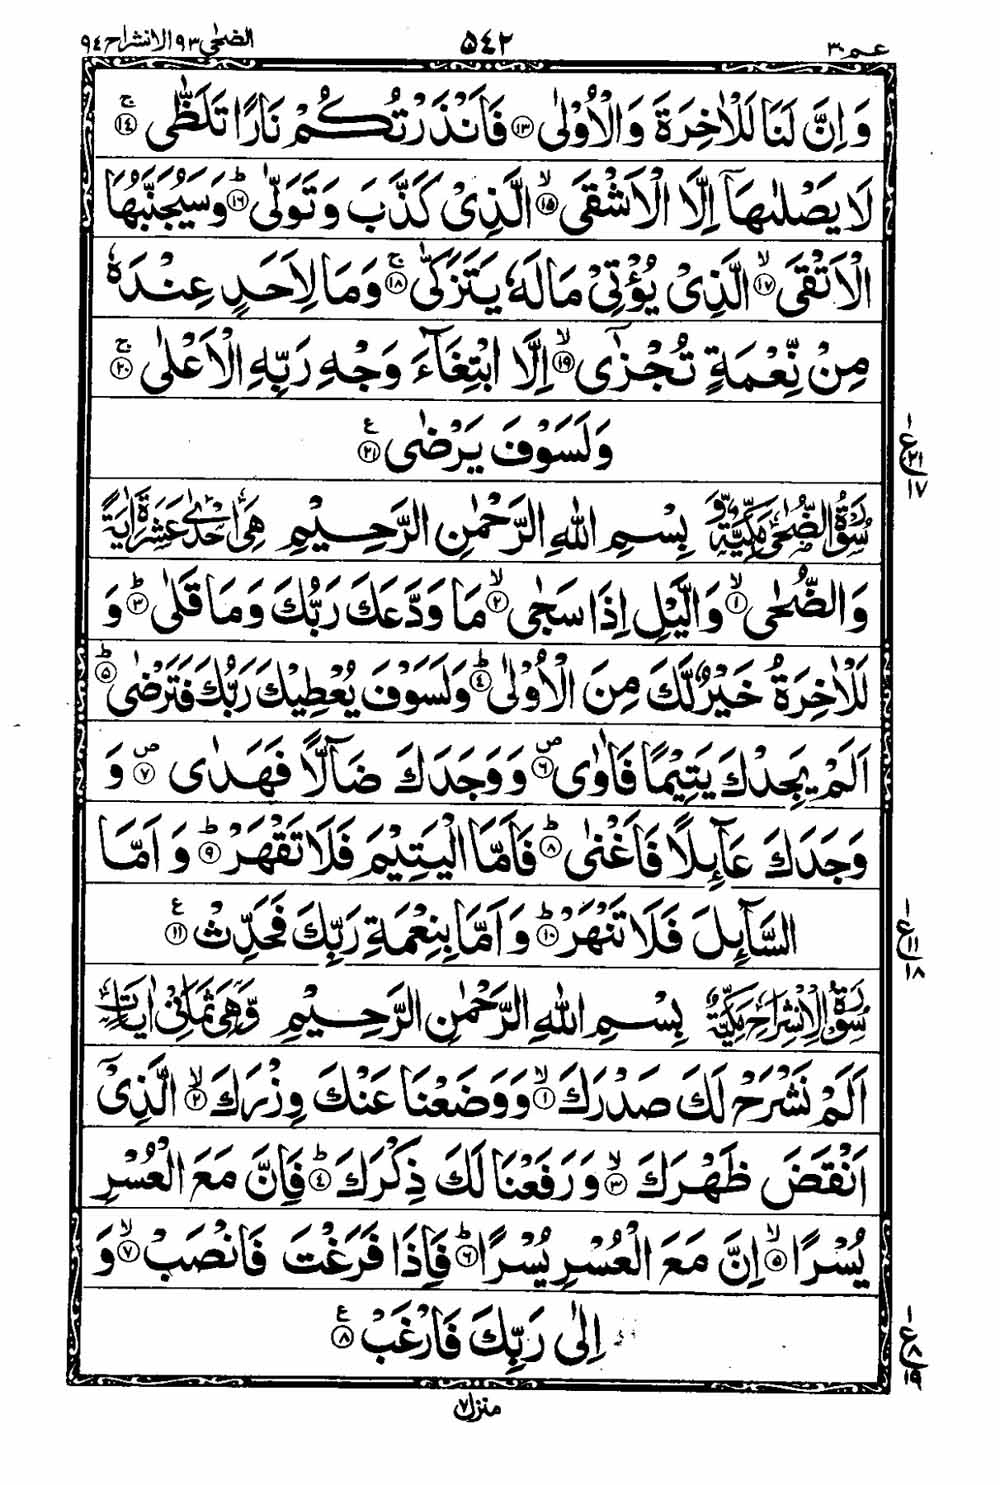 عم ٣٠ ٥٤٢ الضحٰى ٩٣ الانشراح ٩٤
وَ اِنَّ لَنَا لَلْاٰخِرَةَ وَالْاُوْلٰى ۝١٣ فَاَنْذَرْتُكُمْ نَارًا تَلَظّٰى ۚ۝١٤
لَا يَصْلٰىهَاۤ اِلَّا الْاَشْقَى ۙ۝١٥ الَّذِىْ كَذَّبَ وَ تَوَلّٰى ؕ۝١٦ وَ سَيُجَنَّبُهَا
الْاَتْقَى ۙ۝١٧ الَّذِىْ يُؤْتِىْ مَالَهٗ يَتَزَكّٰى ۚ۝١٨ وَ مَا لِاَحَدٍ عِنْدَهٗ
مِنْ نِّعْمَةٍ تُجْزٰٓى ۙ۝١٩ اِلَّا ابْتِغَآءَ وَجْهِ رَبِّهِ الْاَعْلٰى ۚ۝٢٠
وَ لَسَوْفَ يَرْضٰى ۝٢١ ع
ع ٢١ ١٧
سُوْرَةُ الضُّحٰى مَكِّيَّةٌ وَّ بِسْمِ اللهِ الرَّحْمٰنِ الرَّحِيْمِ هِىَ اِحْدٰى عَشْرَةَ اٰيَةً
وَالضُّحٰى ۙ۝١ وَ الَّيْلِ اِذَا سَجٰى ۙ۝٢ مَا وَدَّعَكَ رَبُّكَ وَ مَا قَلٰى ؕ۝٣ وَ
لَلْاٰخِرَةُ خَيْرٌ لَّكَ مِنَ الْاُوْلٰى ؕ۝٤ وَ لَسَوْفَ يُعْطِيْكَ رَبُّكَ فَتَرْضٰى ؕ۝٥
اَلَمْ يَجِدْكَ يَتِيْمًا فَاٰوٰى ۝٦ ص وَ وَجَدَكَ ضَآلًّا فَهَدٰى ۝٧ ص وَ
وَجَدَكَ عَآئِلًا فَاَغْنٰى ؕ۝٨ فَاَمَّا الْيَتِيْمَ فَلَا تَقْهَرْ ؕ۝٩ وَ اَمَّا
السَّآئِلَ فَلَا تَنْهَرْ ؕ۝١٠ وَ اَمَّا بِنِعْمَةِ رَبِّكَ فَحَدِّثْ ۝١١ ع
ع ١١ ١٨
سُوْرَةُ الْاِنْشِرَاحِ مَكِّيَّةٌ بِسْمِ اللهِ الرَّحْمٰنِ الرَّحِيْمِ وَّ هِىَ ثَمَانِىْ اٰيَاتٍ
اَلَمْ نَشْرَحْ لَكَ صَدْرَكَ ۙ۝١ وَ وَضَعْنَا عَنْكَ وِزْرَكَ ۙ۝٢ الَّذِىْۤ
اَنْقَضَ ظَهْرَكَ ۙ۝٣ وَ رَفَعْنَا لَكَ ذِكْرَكَ ؕ۝٤ فَاِنَّ مَعَ الْعُسْرِ
يُسْرًا ۙ۝٥ اِنَّ مَعَ الْعُسْرِ يُسْرًا ؕ۝٦ فَاِذَا فَرَغْتَ فَانْصَبْ ۙ۝٧ وَ
اِلٰى رَبِّكَ فَارْغَبْ ۝٨ ع
ع ٨ ١٩
منزل ٧